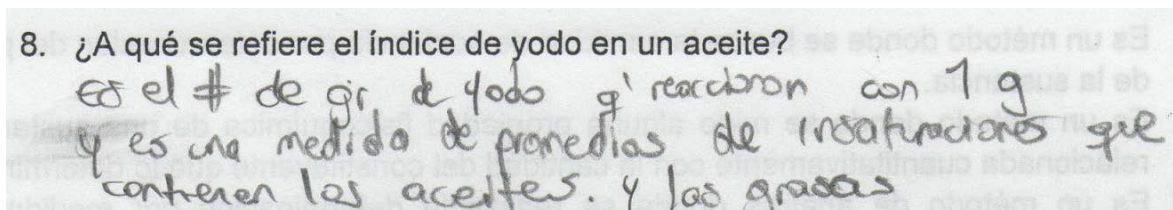 8. ¿A qué se refiere el índice de yodo en un aceite?
es el # de gr de yodo q' reaccionan con 1 g
y es una medida de promedios de insaturaciones que
contienen los aceites y las grasas